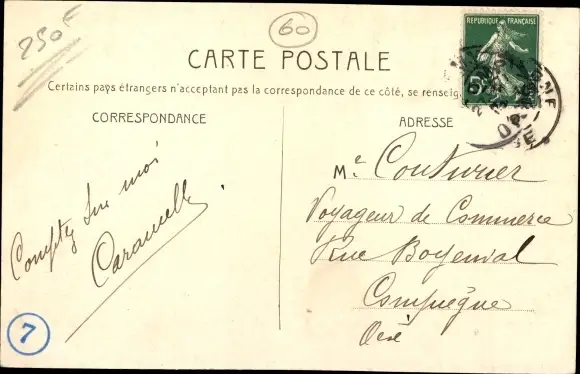 250F
60
RÉPUBLIQUE FRANÇAISE
CARTE POSTALE
Certains pays étrangers n'acceptant pas la correspondance de ce côté, se renseig
CORRESPONDANCE
ADRESSE
Comptez sur moi
Me Couturier
Voyageur de Commerce
Rue
Compiègne
Oise
7